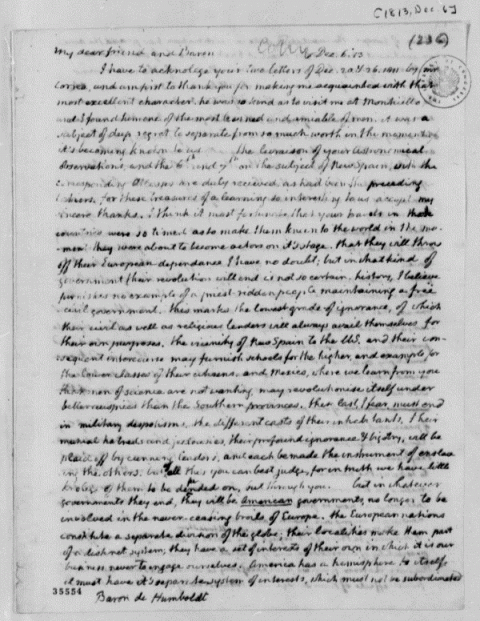 [1813, Dec. 6]
(236)
My dear friend and Baron Dec. 6. 13.
I have to acknolege your two letters of Dec. 20. & 26. 1811. by Mr
Correa, and am first to thank you for making me acquainted with that
most excellent character. he was so kind as to visit me at Monticello
and I found him one of the most learned and amiable of men. it was a
subject of deep regret to separate from so much worth in the moment of
it's becoming known to us. the livraison of your Astronomical
observations and the 6th and 7th on the subject of New Spain, with the
corresponding Atlasses are duly received, as had been the preceding
cahiers. for these treasures of a learning so interesting to us accept my
sincere thanks. I think it most fortunate that your travels in those
countries were so timed as to make them known to the world in the mo-
ment they were about to become actors on it's stage. that they will throw
off their European dependance I have no doubt; but in what kind of
government their revolution will end is not so certain. history, I believe
furnishes no example of a priest-ridden people maintaining a free
civil government. this marks the lowest grade of ignorance, of which
their civil as well as religious leaders will always avail themselves for
their own purposes. the vicinity of New Spain to the US. and their con-
sequent intercourse may furnish schools for the higher, and example for
the lower classes of their citizens. and Mexico, where we learn from you
that men of science are not wanting may revolutionise itself under
better auspices than the Southern provinces. these last, I fear, must end
in military despotisms. the different casts of their inhabitants, their
mutual hatreds and jealousies, their profound ignorance & bigotry, will be
played off by cunning leaders, and each be made the instrument of enslav-
ing the others. but of all this you can best judge, for in truth we have little
knolege of them to be depended on, but through you. but in whatever
governments they end, they will be American governments, no longer to be
involved in the never-ceasing broils of Europe. the European nations
constitute a separate division of the globe; their localities make them part
of a distinct system; they have a set of interests of their own in which it is our
business never to engage ourselves. America has a hemisphere to itself;
it must have it's separate system of interests, which must not be subordinated
35554
Baron de Humboldt